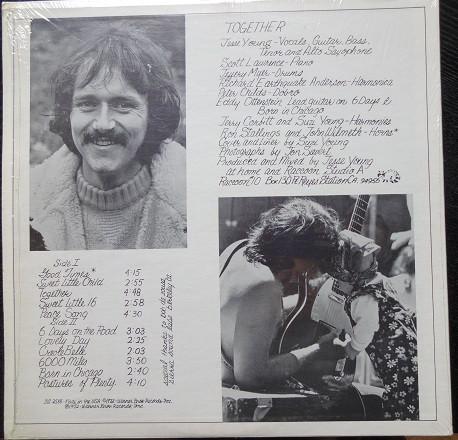 TOGETHER
Jesse Young - Vocals, Guitar, Bass,
Tenor and Alto Saxophone
Scott Lawrence - Piano
Jeffery Myer - Drums
Richard Earthquake Anderson - Harmonica
Peter Childs - Dobro
Eddy Ottenstein Lead guitar on 6 Days &
Born in Chicago
Jerry Corbitt and Suzi Young - Harmonies
Ron Stallings and John Wilmeth - Horns*
Cover and Liner by Suzi Young
Photographs by
Produced and Mixed by Jesse Young
at home and Raccoon Studio A
Raccoon #10 Box 130 Pt. Reyes Station CA. 94956
Side I
Good Times* 4:15
Sweet Little Child 2:55
Together 4:48
Sweet Little 16 2:58
Peace Song 4:30
Side II
6 Days on the Road 3:03
Lovely Day 2:25
Creole Belle 2:03
6000 Miles 3:50
Born in Chicago 2:40
Pastures of Plenty 4:10
special thanks to
sierra sound labs berkeley ca.
BS 2588 - Print in the USA ©1972 - Warner Bros Records Inc.
℗1972 - Warner Bros Records, Inc.